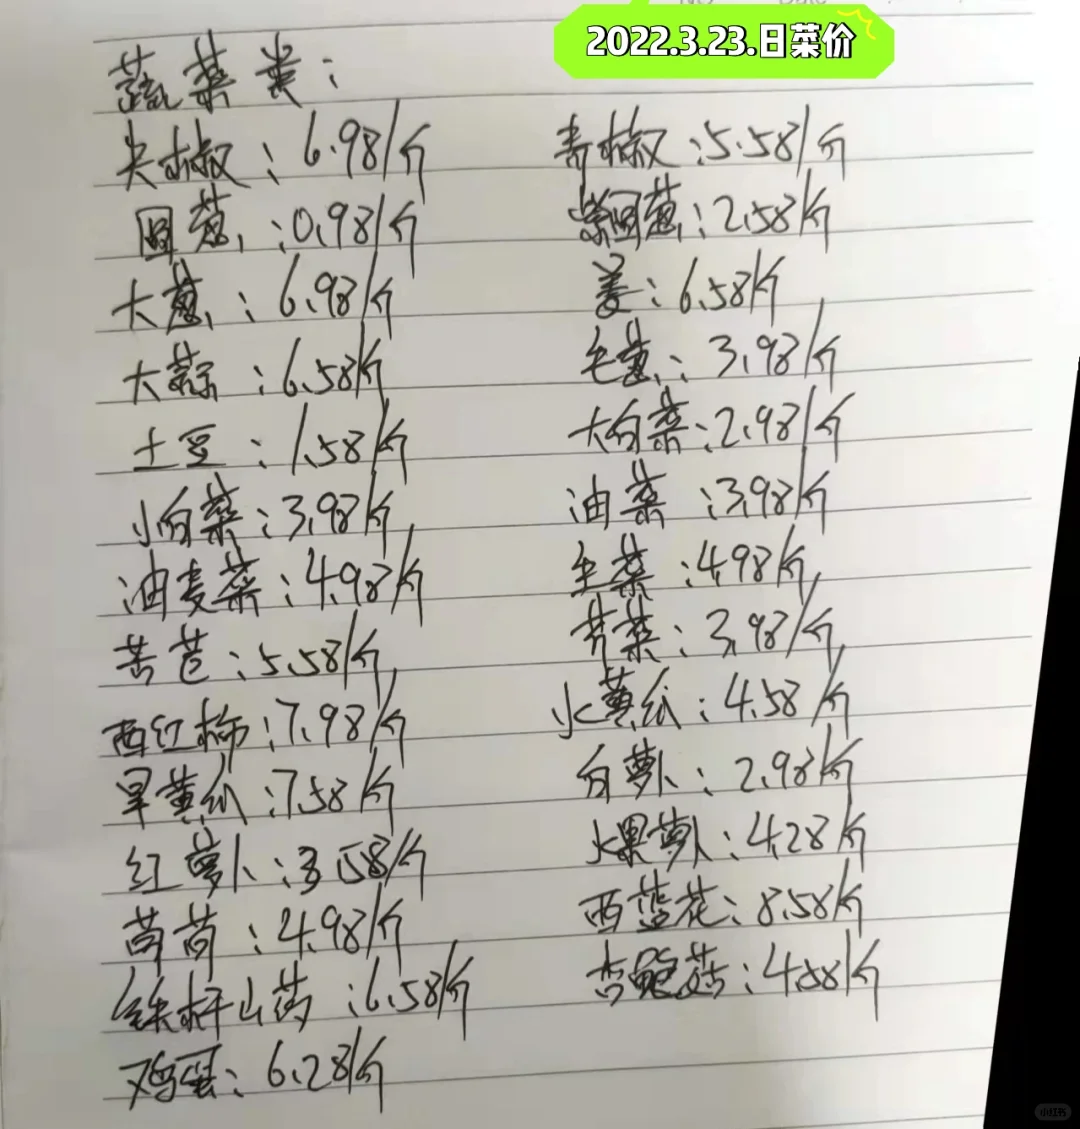 2022.3.23.日菜价
蔬菜类:
尖椒:6.98/斤 青椒:5.58/斤
圆葱:0.98/斤 紫圆葱:2.58/斤
大葱:6.98/斤 姜:6.58/斤
大蒜:6.58/斤 毛葱:3.98/斤
土豆:1.58/斤 大白菜:2.98/斤
小白菜:3.98/斤 油菜:3.98/斤
油麦菜:4.98/斤 生菜:4.98/斤
苦苣:5.58/斤 芹菜:3.98/斤
西红柿:7.98/斤 水黄瓜:4.58/斤
旱黄瓜:7.58/斤 白萝卜:2.98/斤
红萝卜:3.58/斤 水果萝卜:4.28/斤
茼茼:4.98/斤 西蓝花:8.58/斤
铁杆山药:6.58/斤 杏鲍菇:4.58/斤
鸡蛋:6.28/斤
小红书